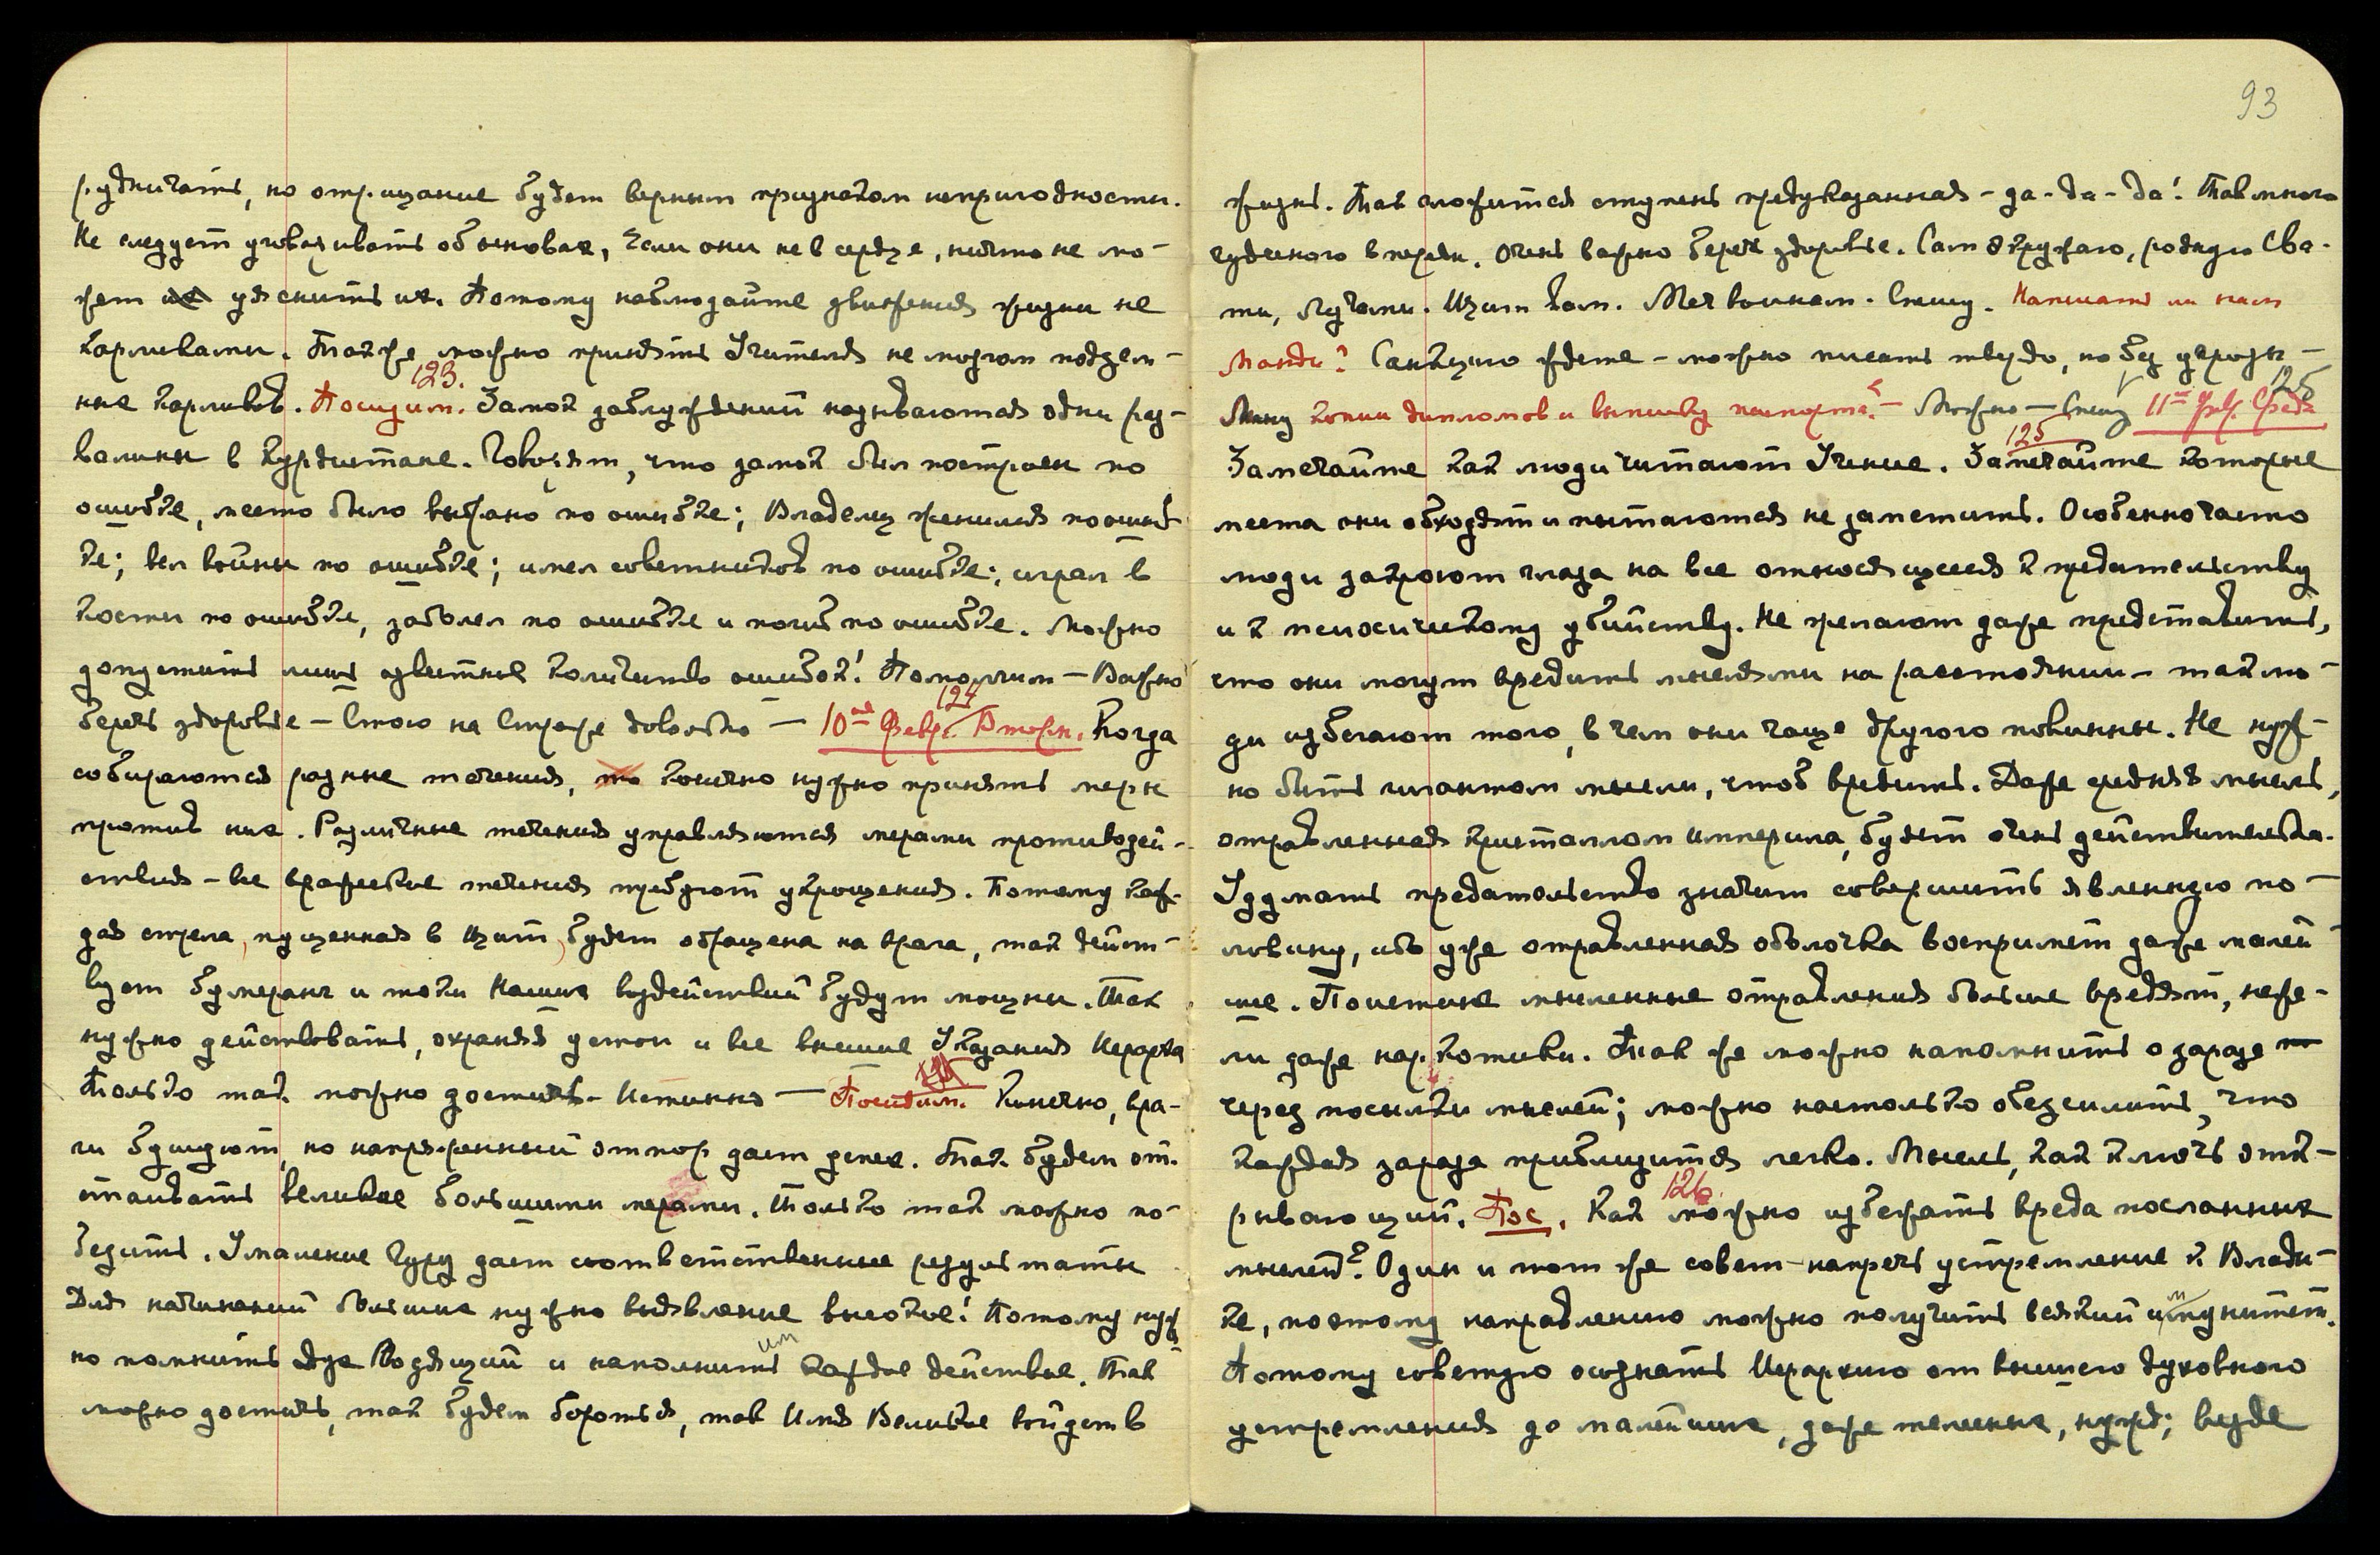 рудничать, но отрицание будет верным признаком непригодности.
Не следует уговаривать об основах, Если они не в сердце, ничто не мо-
жет уяснить их. Потому наблюдайте движения жизни не
карликами. Также можно принять Учителя не мозгом подзем-
123.
ных карликов. Посидим. Замок заблуждений называются одни раз-
валины в Курдистане. Говорят, что замок был построен по
ошибке, место было выбрано по ошибке; Владелец женился по ошиб-
ке; вел войны по ошибке; имел советников по ошибке; играл в
кости по ошибке, заболел по ошибке и погиб по ошибке. Можно
допустить лишь известное количество ошибок! Помолчим — Важно
124
беречь здоровье — Стою на Страже довольно — 10ое Февр. Вторн. Когда
собираются разные течения, то конечно нужно принять меры
против них. Различные течения управляются мерами противодей-
ствия — все вражеские течения требуют укрощения. Потому каж-
дая стрела, пущенная в щит, будет обращена на врага, так дейст-
вует бумеранг и токи Наших воздействий будут мощны. Так
нужно действовать, охраняя устои и все высшие Указания Иерарха
Только так можно достичь. Истинно — Посидим. Конечно, вра-
ги бушуют, но напряженный отпор дает успех. Так будем от-
стаивать великое большими мерами. Только так можно по-
бедить. Умаление Гуру дает соответственные результаты
Для начинаний больших нужно выявление высокое! Потому нуж-
им
но помнить Дух Водящий и наполнить каждое действие. Так
можно достичь, так будем бороться, так Имя Великое войдет в
93
жизнь. Так сложится ступень предуказанная — да — да — да! Так много
чудесного впереди. Очень важно беречь здоровье. Сам окружаю, родную Свя-
ти, Лучами. Щит вам. Меч воинам. Спешу. Написать ли нам
Манди? Санкцию ждете — можно писать твердо, но без угрозы —
125
Можно — Спешу 11ое Февр. Среда
125
Замечайте как люди читают Учение. Замечайте которые
места они обходят и пытаются не заметить. Особенно часто
люди закроют глаза на все относящееся к предательству
и к психическому убийству. Не желают даже представить,
что они могут вредить мыслями на расстоянии — так лю-
ди избегают того, в чем они чаще другого повинны. Не нуж-
но быть гигантом мысли, чтоб вредить. Даже средняя мысль,
отравленная кристаллом империла, будет очень действительна.
Удумать предательство значит совершить явленную по-
ловину, ибо уже отравленная оболочка воспримет даже малей-
шие. Поистине мысленные отравления больше вредят, неже-
ли даже наркотики. Так же можно напомнить о заразе
через посылки мыслей; можно настолько обессилить, что
каждая зараза приблизится легко. Мысль, как ключ отк-
126.
рывающий. Пос. Как можно избежать вреда посланных
мыслей? Один и тот же совет — напречь устремление к Влады-
ке, по этому направлению можно получить всякий иммунитет.
Потому советую осознать Иерархию от высшего духовного
устремления до малейших, даже телесных, нужд; везде